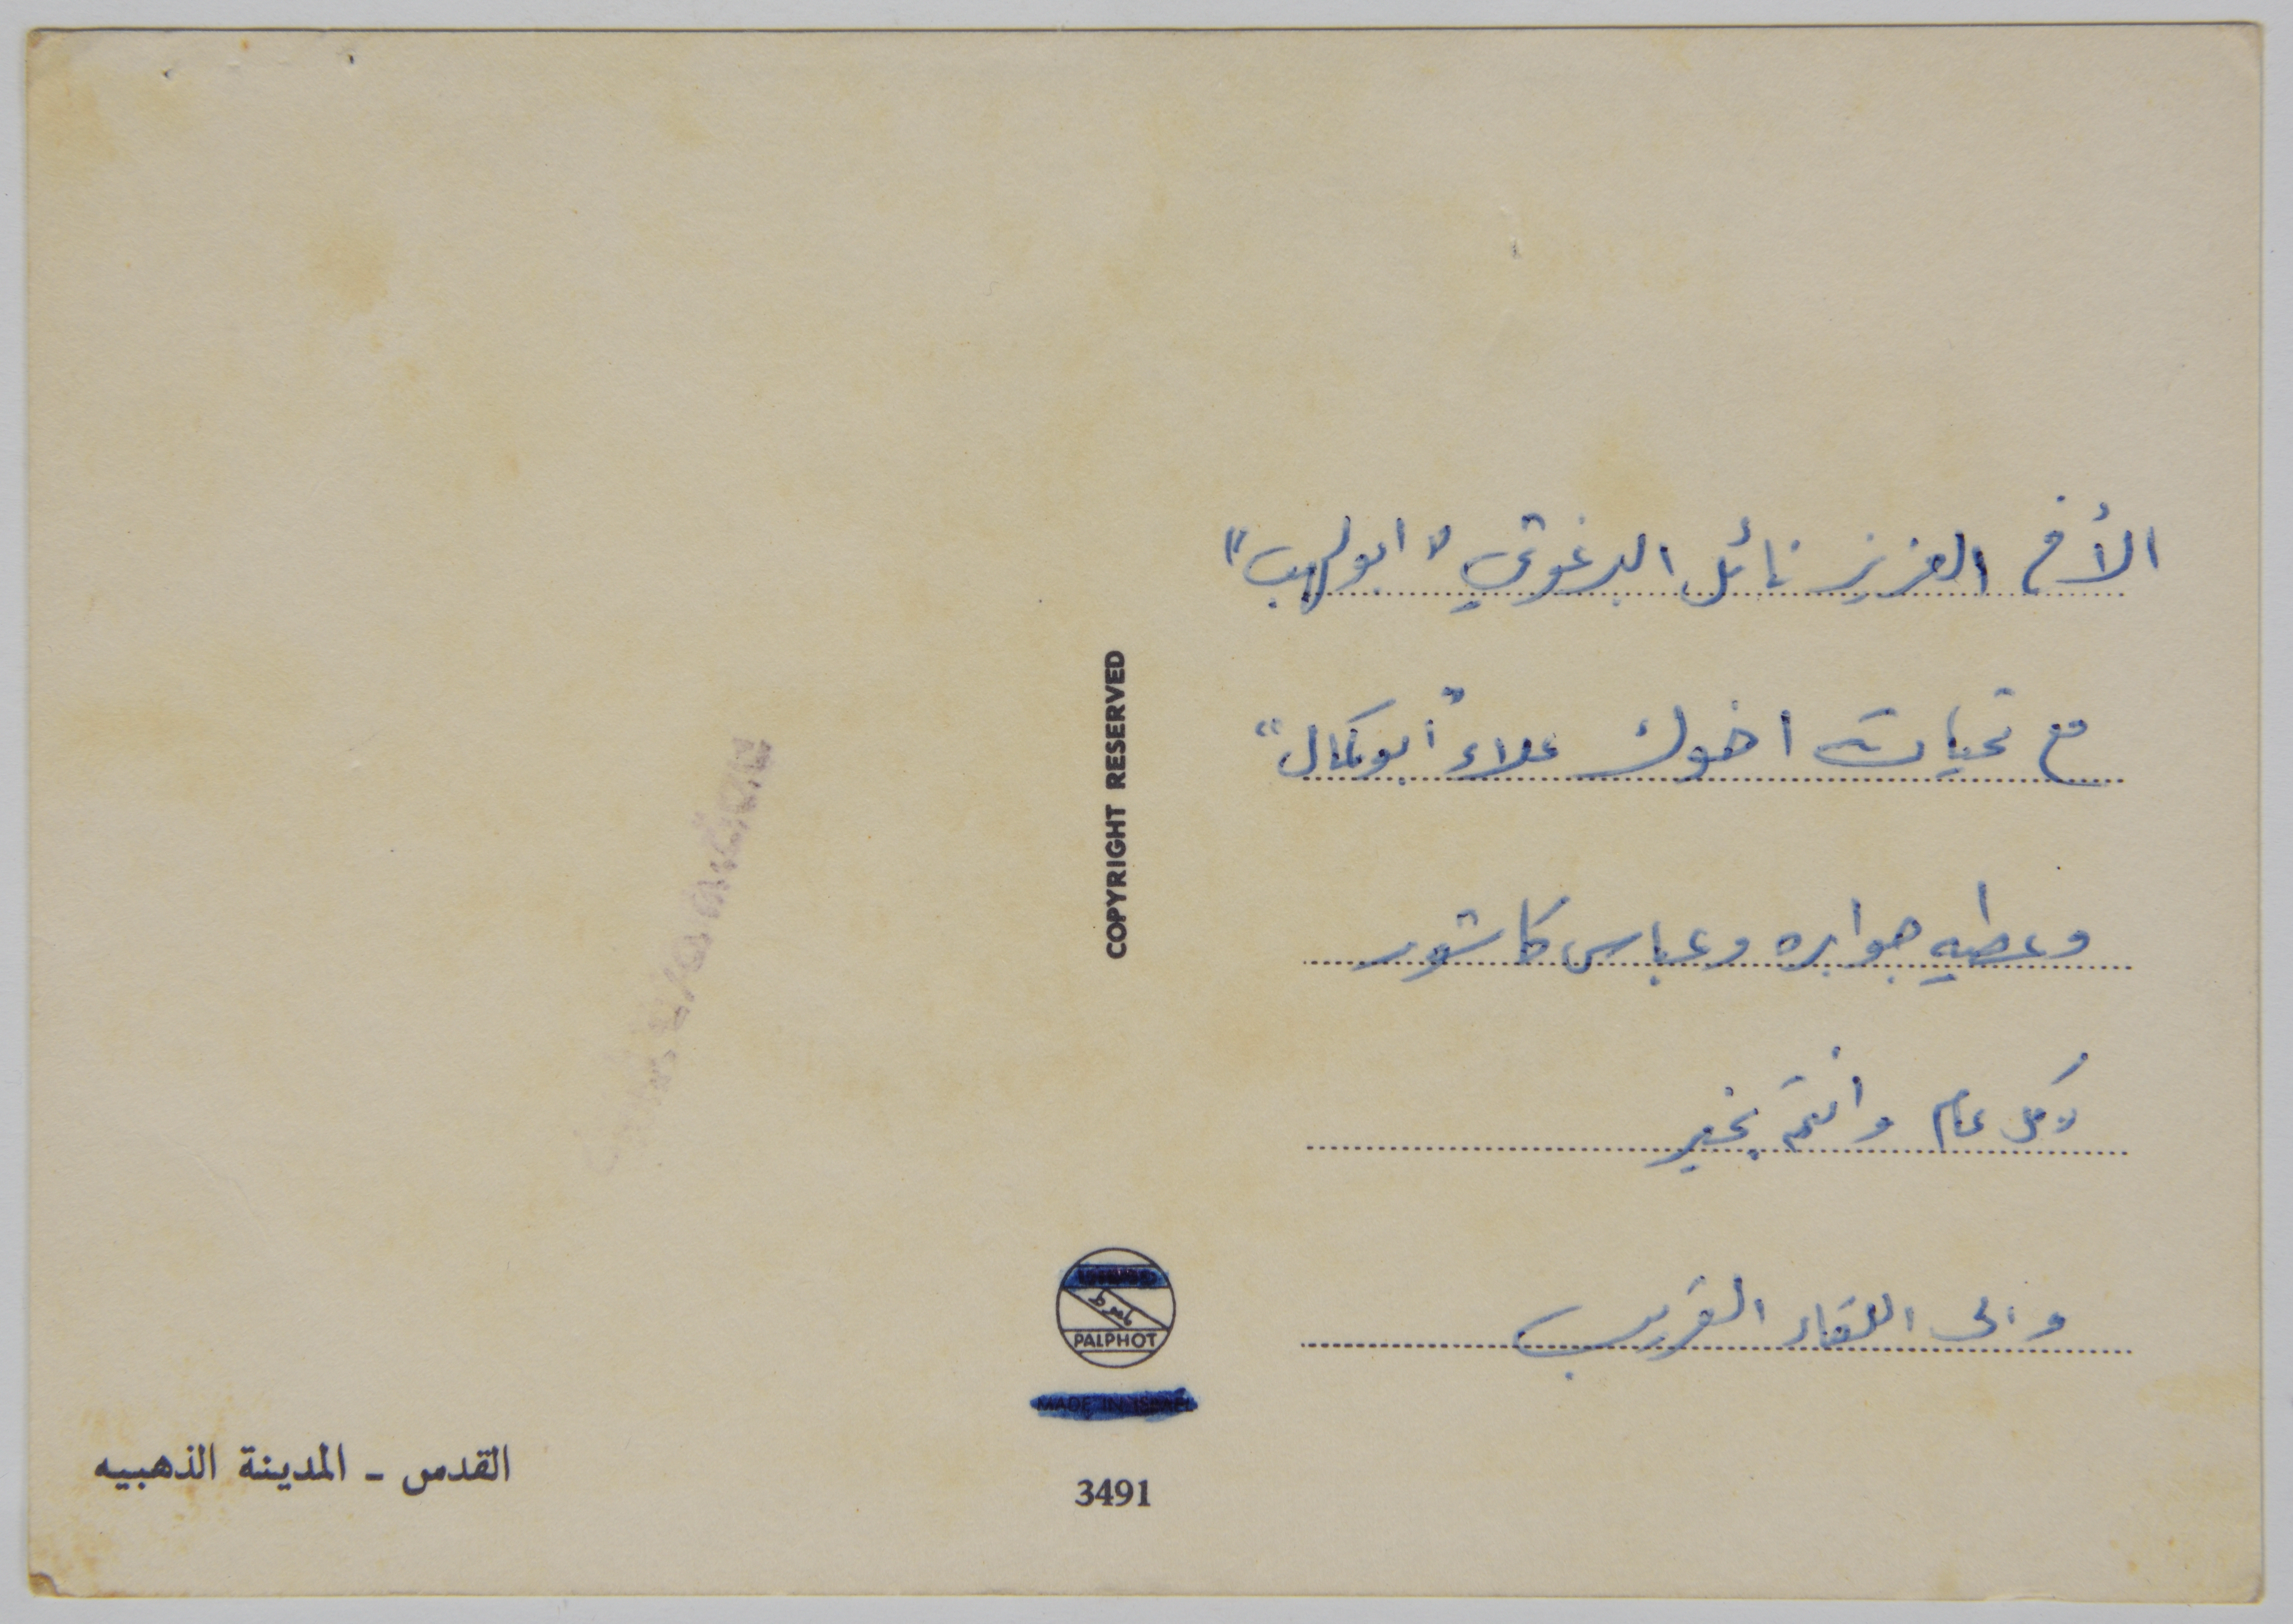 الأخ العزيز نائل البرغوثي "ابو لهب"
مع تحيات اخوك علاء "ابو كمال"
وعطيه جوابره وعباس كاشور
كل عام وانتم بخير
والى اللقاء القريب
COPYRIGHT RESERVED
PALPHOT
MADE IN ISRAEL
3491
القدس - المدينة الذهبيه